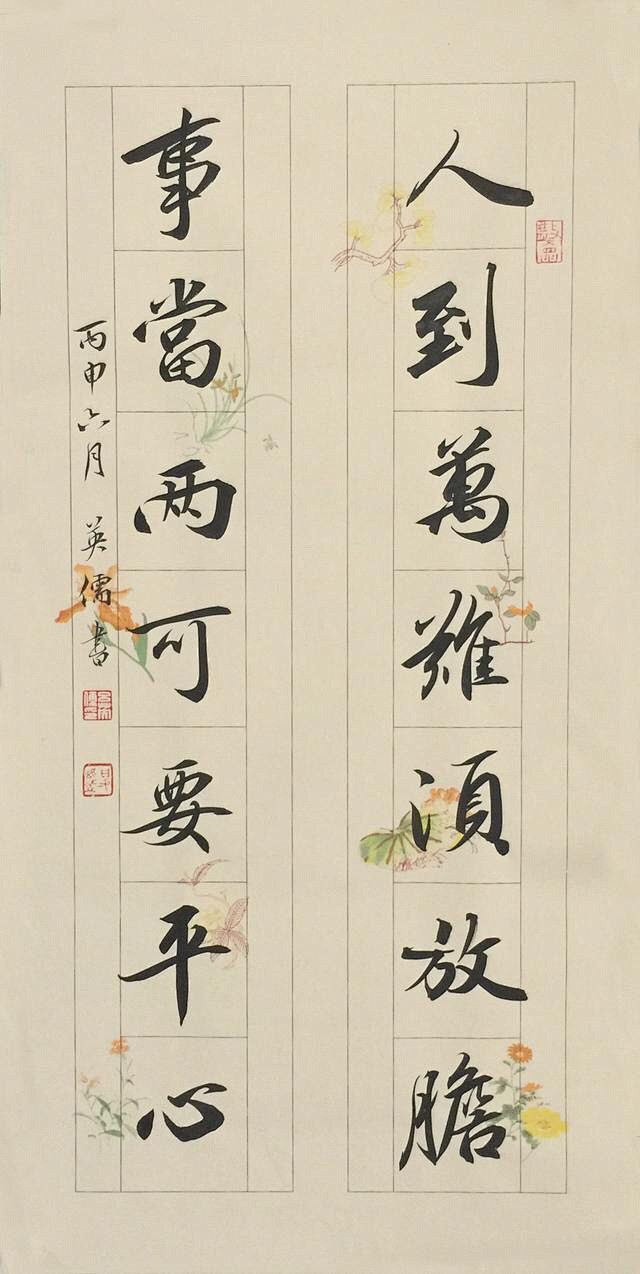 人到萬難須放膽
事當两可要平心
丙申六月 英儒書